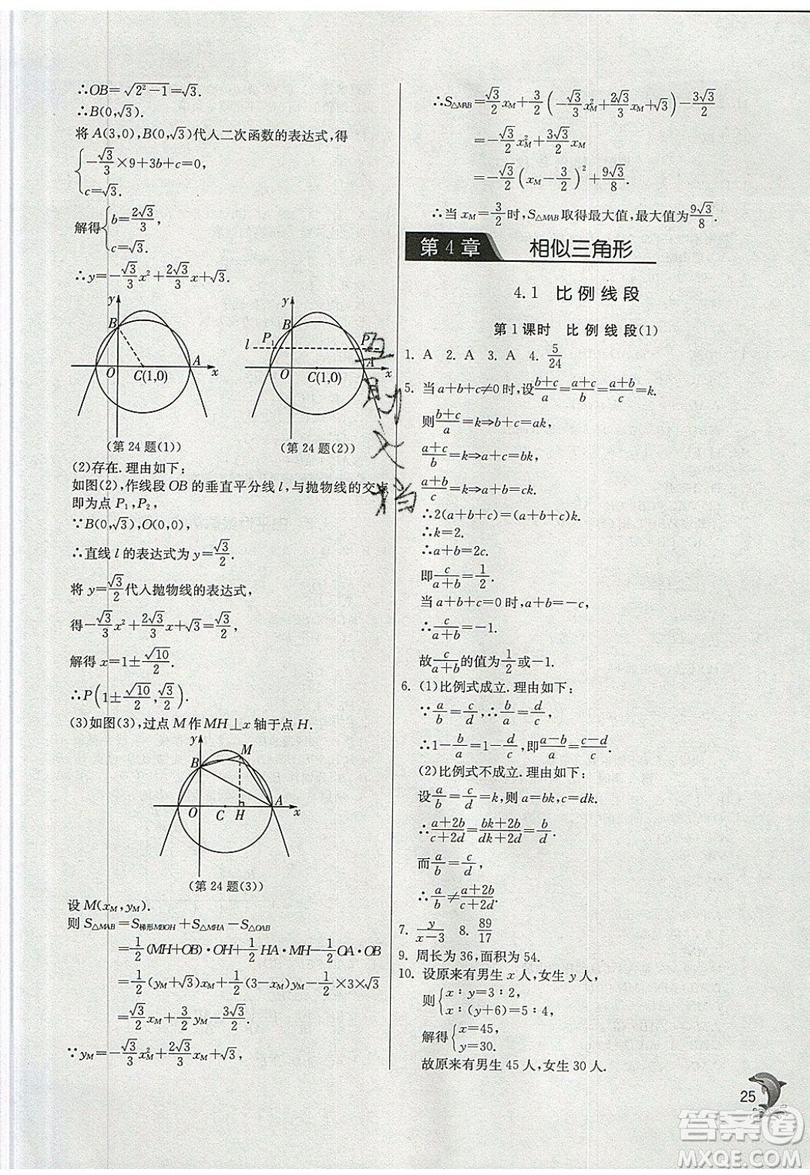 ∴OB=√(2²−1)=√3.
∴B(0,√3).
将 A(3,0),B(0,√3)代入二次函数的表达式,得
{−√3/3×9+3b+c=0,
c=√3.
解得{b=2√3/3,
c=√3.
∴y=−√3/3x²+2√3/3x+√3.
y
B
O
C(1,0)
A
x
(第 24 题(1))
y
B
l
P₁
P₂
O
C(1,0)
A
x
(第 24 题(2))
(2)存在.理由如下:
如图(2),作线段 OB 的垂直平分线 l,与抛物线的交点
即为点 P₁,P₂,
∵B(0,√3),O(0,0),
∴直线 l 的表达式为 y=√3/2.
将 y=√3/2代入抛物线的表达式,
得−√3/3x²+2√3/3x+√3=√3/2,
解得 x=1±√10/2.
∴P(1±√10/2,√3/2).
(3)如图(3),过点 M 作 MH⊥x 轴于点 H.
y
M
B
O
C
H
A
x
(第 24 题(3))
设 M(x_M,y_M).
则 S△MAB=S梯形MBOH+S△MHA−S△OAB
=1/2(MH+OB)·OH+1/2HA·MH−1/2OA·OB
=1/2(y_M+√3)x_M+1/2(3−x_M)y_M−1/2×3×√3
=√3/2x_M+3/2y_M−3√3/2.
∵y_M=−√3/3x²_M+2√3/3x_M+√3,
∴S△MAB=√3/2x_M+3/2(−√3/3x²_M+2√3/3x_M+√3)−3√3/2
=−√3/2x²_M+3√3/2x_M
=−√3/2(x_M−3/2)²+9√3/8.
∴当 x_M=3/2时,S△MAB取得最大值,最大值为9√3/8.
第 4 章 相似三角形
4.1 比例线段
第 1 课时 比例线段(1)
1. A 2. A 3. A 4. 5/24
5. 当 a+b+c≠0 时,设(b+c)/a=(a+c)/b=(a+b)/c=k.
则(b+c)/a=k⇒b+c=ak,
(a+c)/b=k⇒a+c=bk,
(a+b)/c=k⇒a+b=ck.
∴2(a+b+c)=(a+b+c)k.
∴k=2.
∴a+b=2c.
即c/(a+b)=1/2.
当 a+b+c=0 时,a+b=−c,
∴c/(a+b)=−1.
故c/(a+b)的值为1/2或−1.
6. (1)比例式成立.理由如下:
∵a/b=c/d,∴b/a=d/c.
∴1−b/a=1−d/c,即(a−b)/a=(c−d)/c.
(2)比例式不成立.理由如下:
设a/b=c/d=k,则a=bk,c=dk.
∴(a+2b)/(c+2d)=(bk+2b)/(dk+2d)=b/d.
而a/b=c/d,
∴a/b≠(a+2b)/(c+2d).
7. y/(x−3) 8. 89/17
9. 周长为 36,面积为 54.
10. 设原来有男生 x 人,女生 y 人,
则{x∶y=3∶2,
x∶(y+6)=5∶4,
解得{x=45,
y=30.
故原来有男生 45 人,女生 30 人.
25
答案圈
MXQE.COM